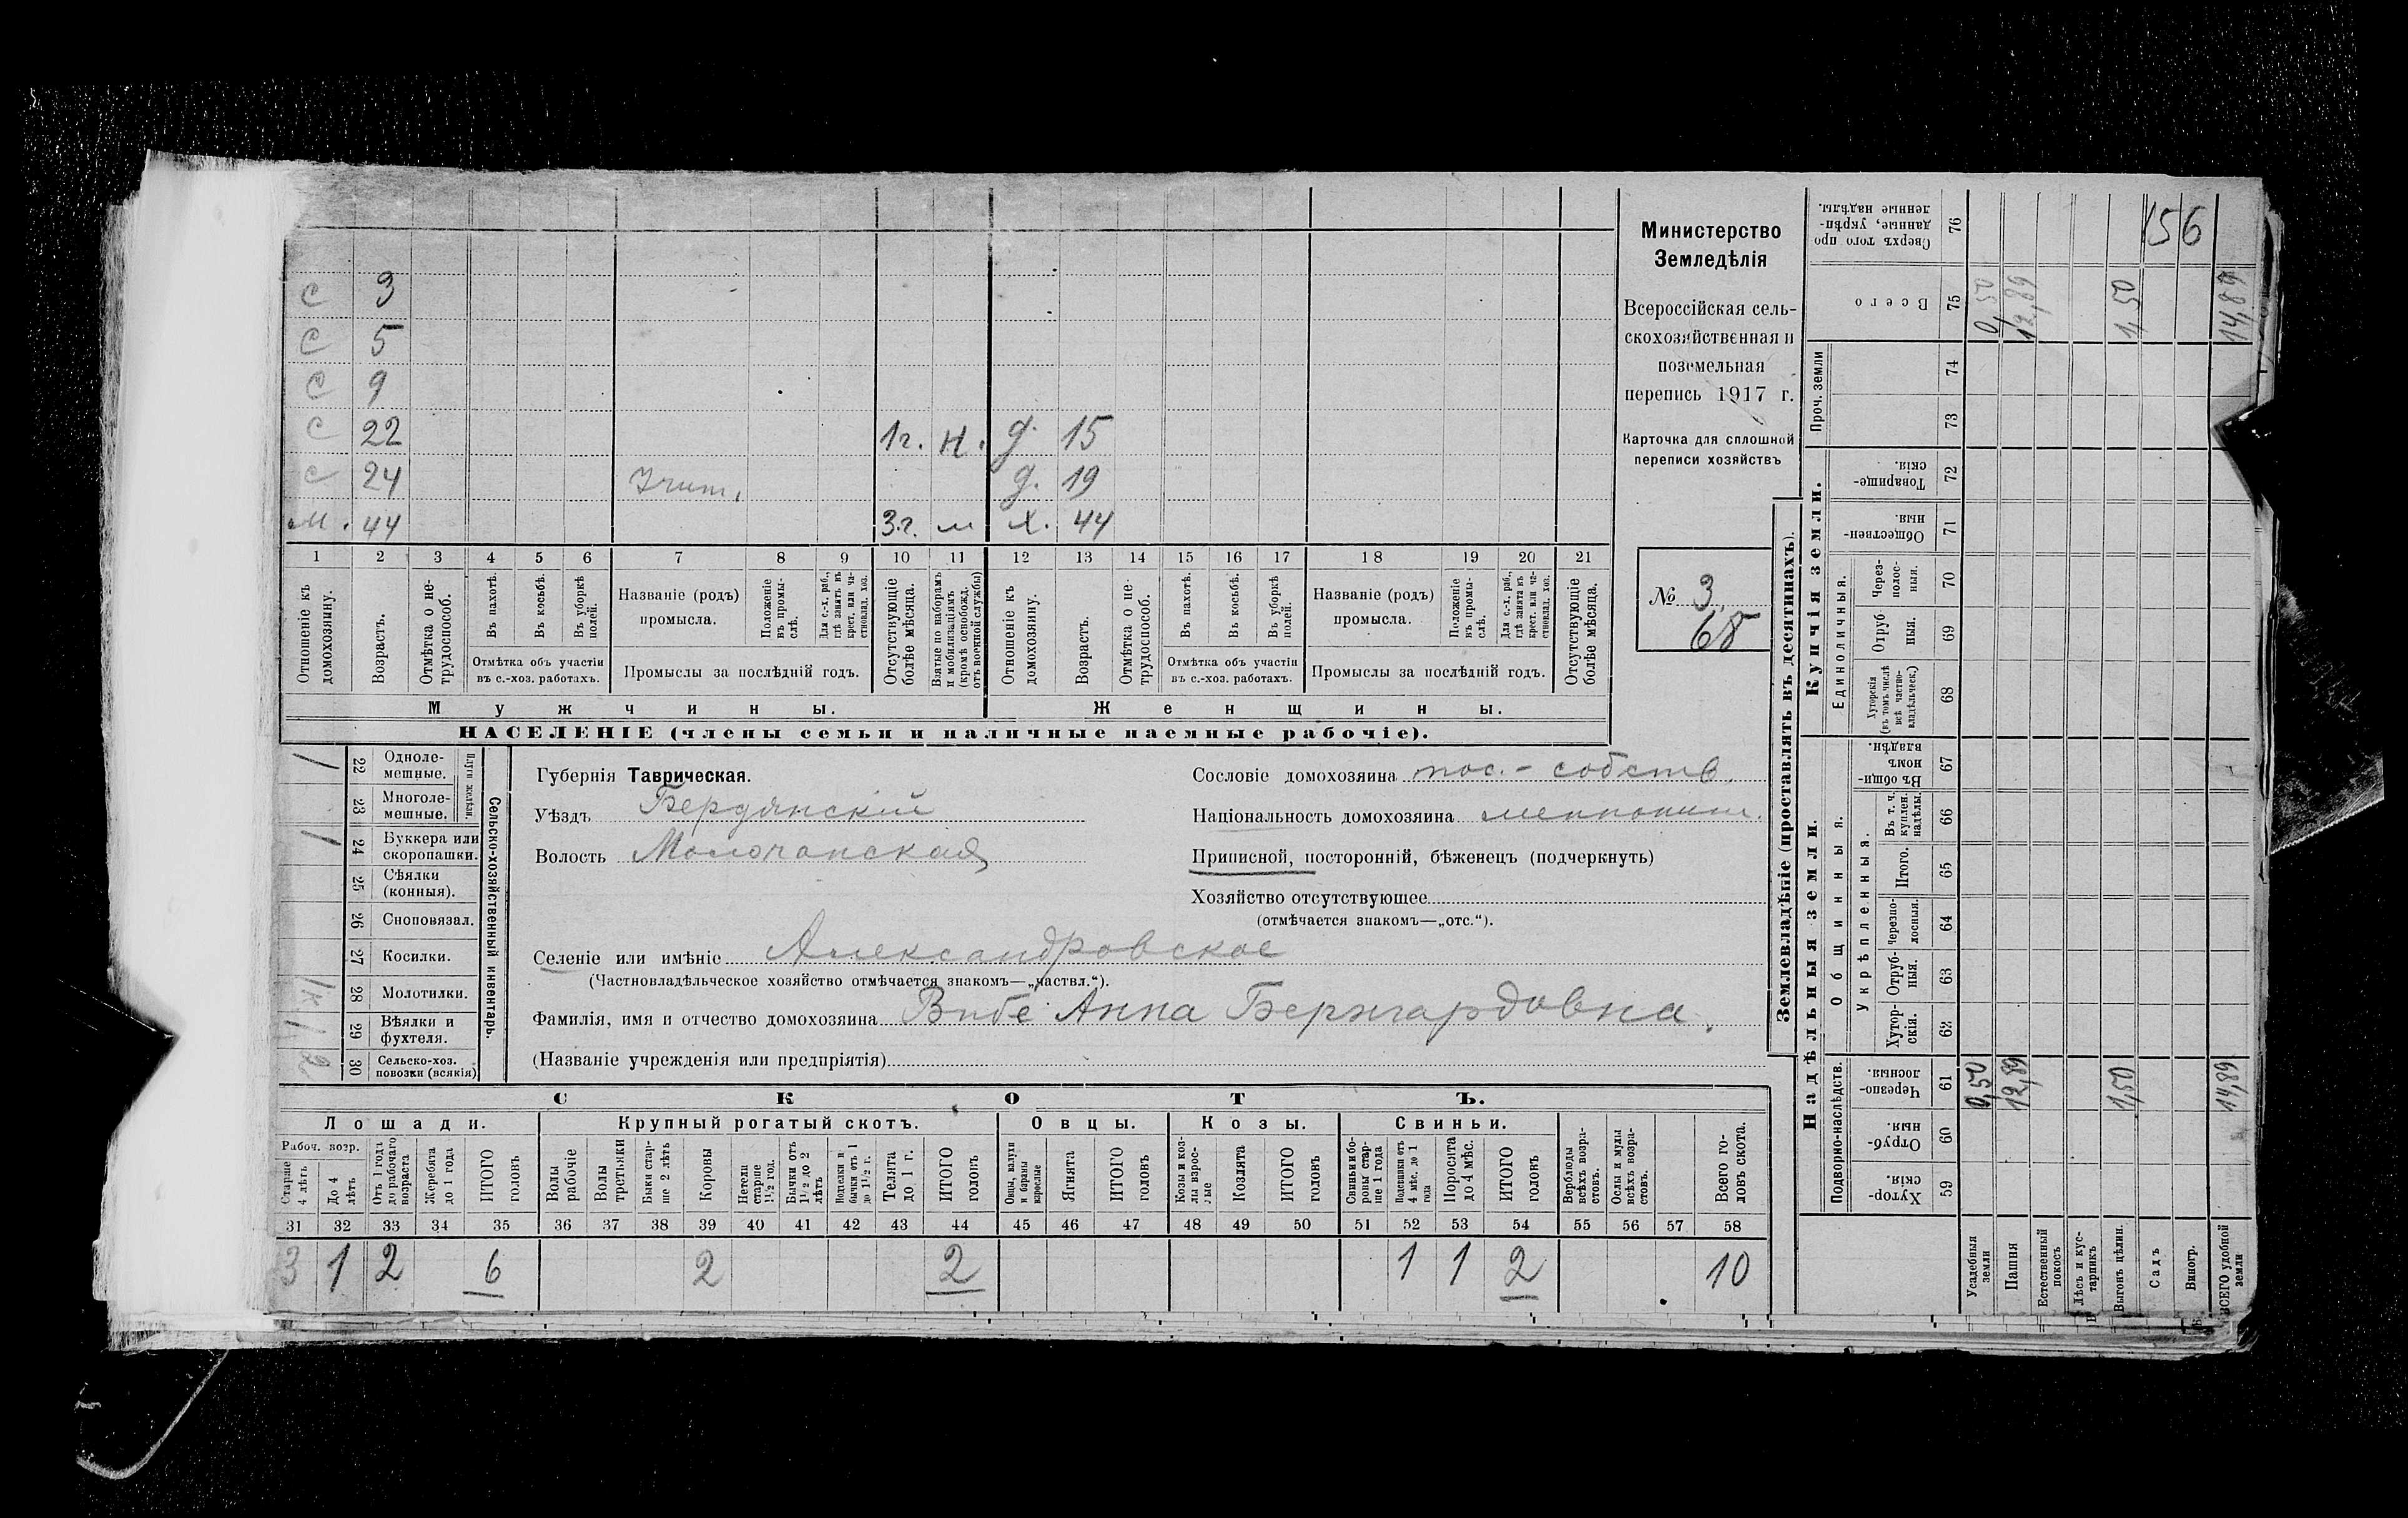 156
Министерство
Земледѣлія
Всероссійская сель-
скохозяйственная и
поземельная
перепись 1917 г.
Карточка для сплошной
переписи хозяйствъ
№ 3
68
с 3
с 5
с 9
с 22 1г. н. д. 15
с 24 д. 19
м. 44 3.г. м х. 44
1 2 3 4 5 6 7 8 9 10 11 12 13 14 15 16 17 18 19 20 21
Отношеніе къ домохозяину.
Возрастъ.
Отмѣтка о не-трудоспособ.
Въ пахотѣ.
Въ косьбѣ.
Въ уборкѣ полей.
Отмѣтка объ участіи
въ с.-хоз. работахъ.
Названіе (родъ)
промысла.
Положеніе въ промы-слѣ.
Для с.-х. раб., гдѣ занятъ въ крест. или ча-стновлад. хоз.
Промыслы за послѣдній годъ.
Отсутствующіе болѣе мѣсяца.
Взятые по наборамъ и мобилизаціямъ (кромѣ освобожд. отъ военной службы)
Отношеніе къ домохозяину.
Возрастъ.
Отмѣтка о не-трудоспособ.
Въ пахотѣ.
Въ косьбѣ.
Въ уборкѣ полей.
Отмѣтка объ участіи
въ с.-хоз. работахъ.
Названіе (родъ)
промысла.
Положеніе въ промы-слѣ.
Для с.-х. раб., гдѣ занята въ крест. или ча-стновлад. хоз.
Промыслы за послѣдній годъ.
Отсутствующіе болѣе мѣсяца.
Мужчины. Женщины.
НАСЕЛЕНІЕ (члены семьи и наличные наемные рабочіе).
Сельско-хозяйственный инвентарь.
Плуги желѣзн.
1 22 Одноле-мешные.
23 Многоле-мешные.
1 24 Буккера или скоропашки.
25 Сѣялки (конныя).
26 Сноповязал.
27 Косилки.
1к 28 Молотилки.
1 29 Вѣялки и фухтеля.
2 30 Сельско-хоз. повозки (всякія)
Губернія Таврическая.
Уѣздъ Бердянскій
Волость Молочанская
Сословіе домохозяина пос.-собств.
Національность домохозяина меннонит.
Приписной, посторонній, бѣженецъ (подчеркнуть)
Хозяйство отсутствующее
(отмѣчается знакомъ—„отс.“).
Селеніе или имѣніе Александровское
(Частновладѣльческое хозяйство отмѣчается знакомъ—„частвл.“).
Фамилія, имя и отчество домохозяина Вибе Анна Бернгардовна.
(Названіе учрежденія или предпріятія)
СКОТЪ.
Лошади. Крупный рогатый скотъ. Овцы. Козы. Свиньи.
Рабоч. возр.
Старше 4 лѣтъ
До 4 лѣтъ
Отъ 1 года до рабочаго возраста
Жеребята до 1 года
ИТОГО головъ
Волы рабочіе
Волы третьяки
Быки стар-ше 2 лѣтъ
Коровы
Нетели старше 1½ год.
Бычки отъ 1½ до 2 лѣтъ
Воделки и бычки отъ 1 до 1½ г.
Телята до 1 г.
ИТОГО головъ
Овцы, валухи и бараны взрослые
Ягнята
ИТОГО головъ
Козы и коз-лы взрос-лые
Козлята
ИТОГО головъ
Свиньи и бо-ровы стар-ше 1 года
Подсвинки отъ 4 мѣс. до 1 года
Поросята до 4 мѣс.
ИТОГО головъ
Верблюды всѣхъ возра-стовъ.
Ослы и мулы всѣхъ возра-стовъ.
Всего го-ловъ скота.
31 32 33 34 35 36 37 38 39 40 41 42 43 44 45 46 47 48 49 50 51 52 53 54 55 56 57 58
3 1 2 6 2 2 1 1 2 10
Землевладѣніе (проставлять въ десятинахъ).
Надѣльныя земли. Купчія земли. Проч. земли
Подворно-наслѣдств.
Общинныя.
Укрѣпленныя.
Единоличныя.
Хутор-скія. 59
Отруб-ныя. 60
Черезпо-лосныя. 61 0,50 12,89 1,50 14,89
Хутор-скія. 62
Отруб-ныя. 63
Черезпо-лосныя. 64
Итого. 65
Въ т. ч. куплен. надѣлы. 66
Въ общи-номъ владѣн. 67
Хуторскія (въ томъ числѣ всѣ частно-владѣльческ.) 68
Отруб ныя. 69
Через-полос-ныя. 70
Обществен-ныя. 71
Товарище-скія. 72
73
74
Всего 75 0,50 12,89 1,50 14,89
Сверхъ того про данные, укрѣп-ленные надѣлы. 76
Усадебныя земли
Пашня
Естественный покосъ
Лѣсъ и кус-тарникъ
Выгонъ цѣлин.
Садъ
Виногр.
ВСЕГО удобной земли